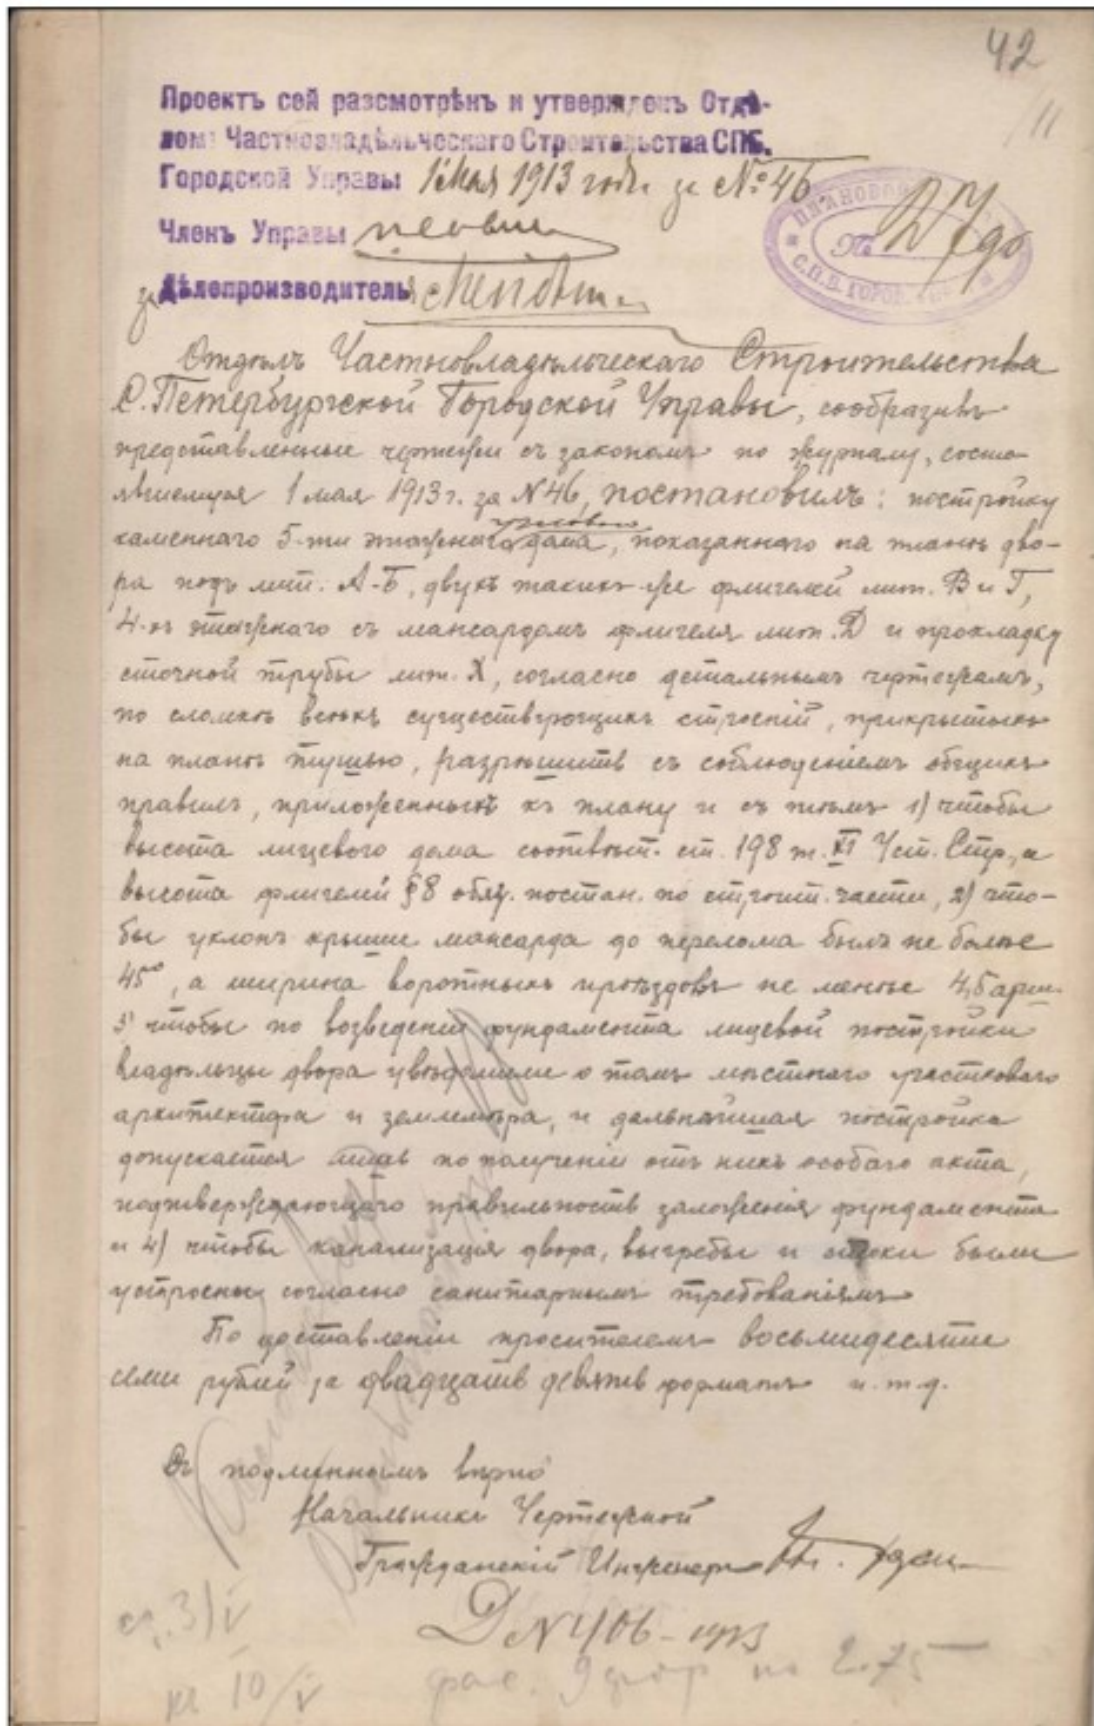 42
11
Проектъ сей разсмотрѣнъ и утвержденъ Отдѣ-
ломъ Частновладѣльческаго Строительства СПБ.
Городской Управы 1 мая 1913 года за № 46
Членъ Управы
за Дѣлопроизводителя
Отдѣлъ Частновладѣльческаго Строительства
С. Петербургской Городской Управы, сообразивъ
представленные чертежи съ закономъ по журналу, состо-
явшемуся 1 мая 1913 г. за N 46, постановилъ: постройку
каменнаго 5-ти этажнаго лицевого дома, показаннаго на планѣ дво-
ра подъ лит. А-Б, двухъ такихъ-же флигелей лит. В и Г,
4-хъ этажнаго съ мансардомъ флигеля лит. Д и прокладку
сточной трубы лит. Х, согласно детальнымъ чертежамъ,
по сломкѣ всѣхъ существующихъ строеній, прикрытыхъ
на планѣ тушью, разрѣшить съ соблюденіемъ общихъ
правилъ, приложенныхъ къ плану и съ тѣмъ 1) чтобы
высота лицевого дома соотвѣт. ст. 198 т. XI Уст. Стр., а
высота флигелей § 8 обяз. постан. по строит. части, 2) что-
бы уклонъ крыши мансарда до перелома былъ не болѣе
45°, а ширина воротныхъ проѣздовъ не менѣе 4,5 арш.
3) чтобы по возведеніи фундамента лицевой постройки
владѣльцы двора увѣдомили о томъ мѣстнаго участковаго
архитектора и землемѣра, и дальнѣйшая постройка
допускается лишь по полученіи отъ нихъ особаго акта,
подтверждающаго правильность заложенія фундамента
и 4) чтобы канализація двора, выгребы и стоки были
устроены согласно санитарнымъ требованіямъ
По доставленіи просителемъ восьмидесяти
семи рублей за двадцать девять форматъ и. т. д.
Съ подлиннымъ вѣрно
Начальникъ Чертежной
Гражданскій Инженеръ
Д N 406 - 1913
3/V
10/V
по 2.75